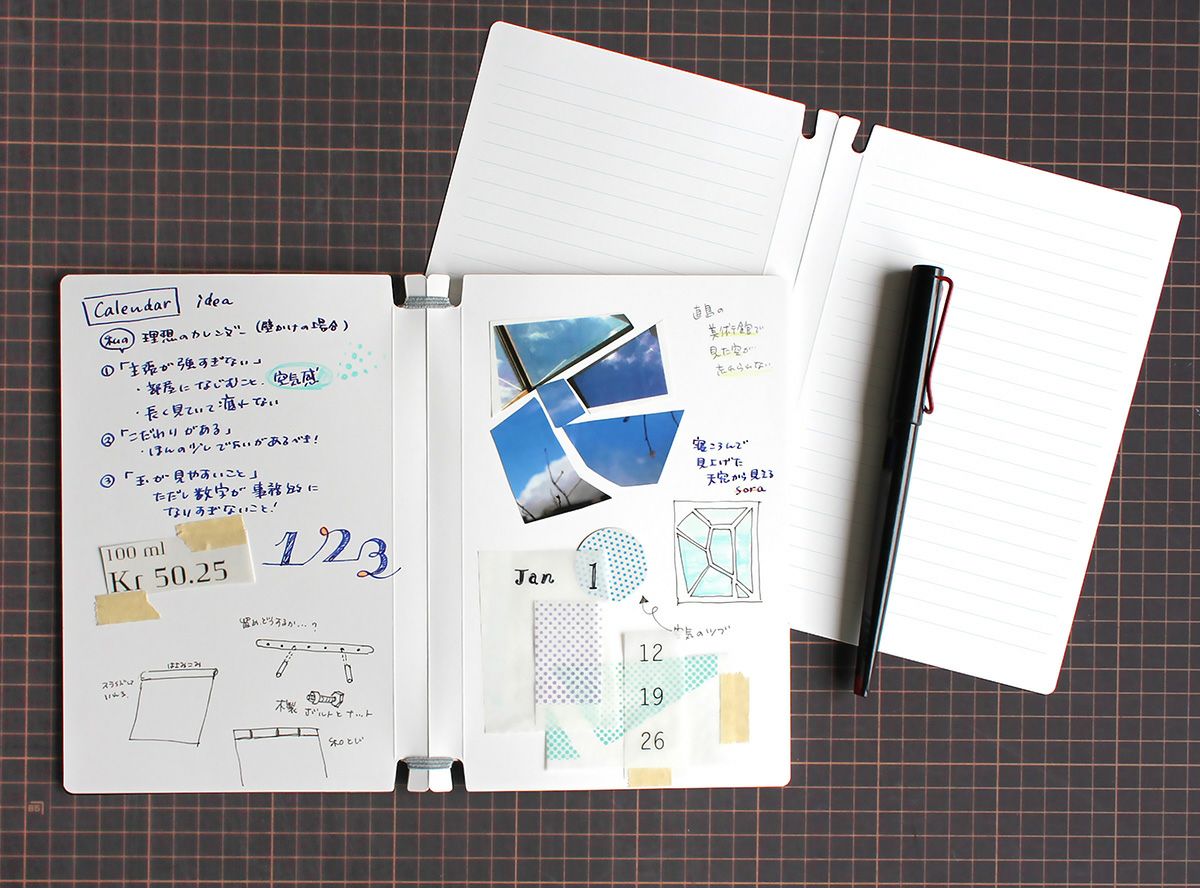 Calendar idea
私の 理想のカレンダー（壁かけの場合）
①「主張が強すぎない」
・部屋になじむこと. 空気感
・長く見ていて疲れない
②「こだわりがある」
・ほんの少しでいいがあるべき!
③「玉が見やすいこと」
ただし数字が事務的に
なりすぎないこと!
100 ml
Kr 50.25
123
留めどうするか…?
はさみこみ
スライドして
いれる
木製 ボルトとナット
和とじ
直島の
美術館で
見た空が
忘れられない
寝ころんで
見上げた
天窓から見える
sora
Jan 1
空気のツブ
12
19
26
B5